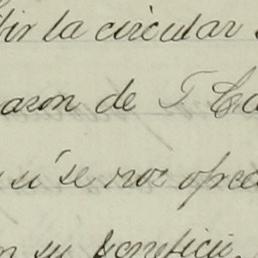 bir la circular
aron de T. Ca
si se nos ofrec
en su beneficio